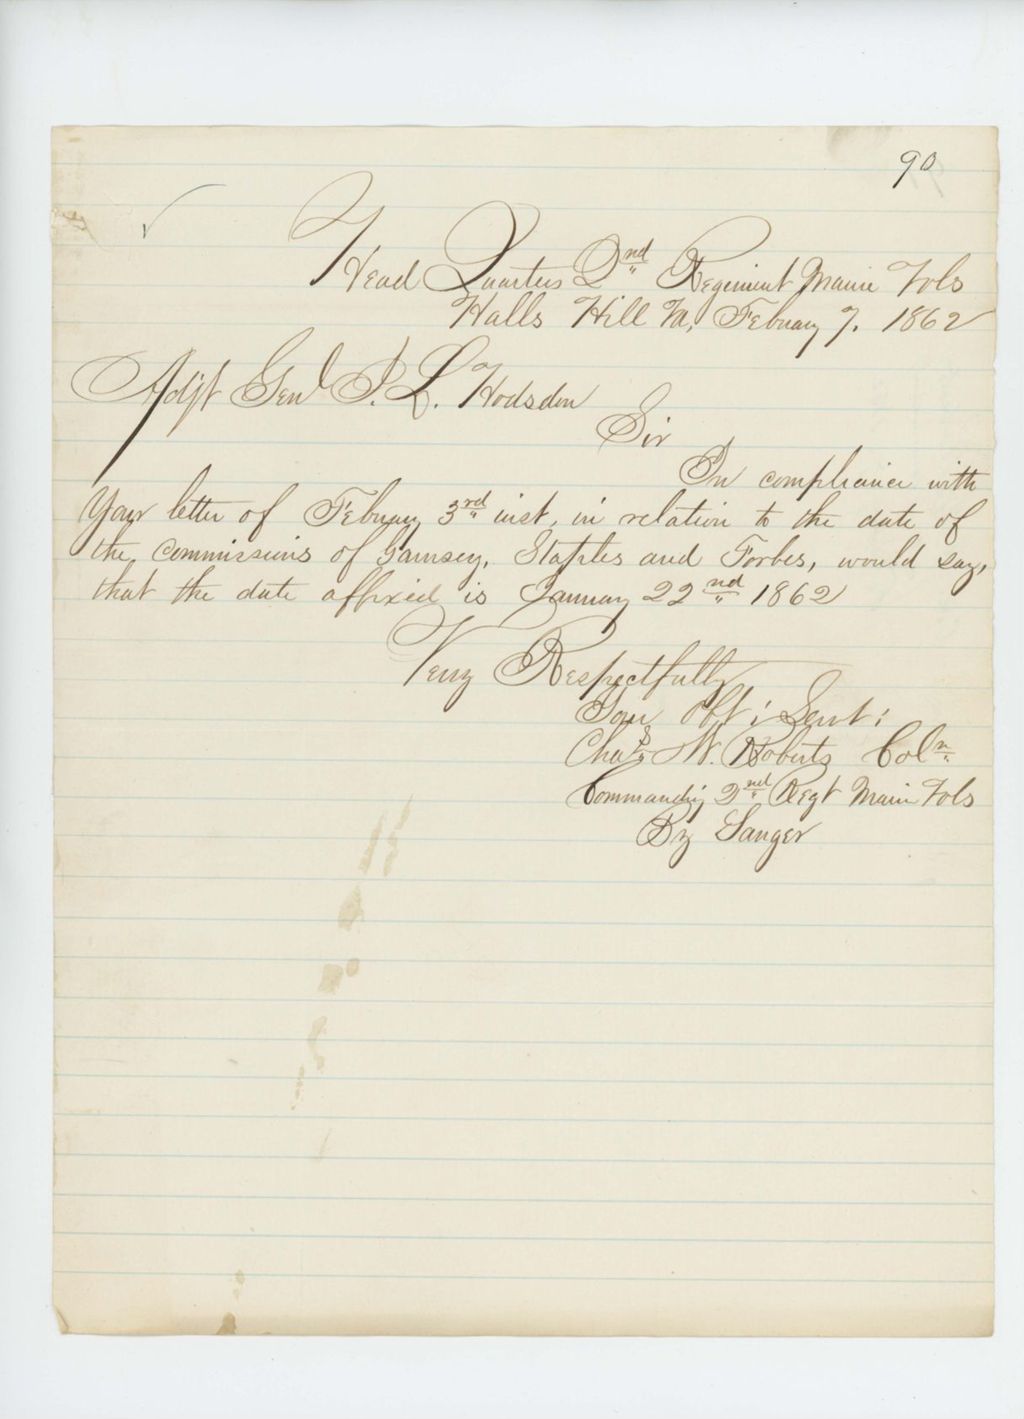 90
Head Quarters 2nd Regiment Maine Vols
Halls Hill Va, Febuary 7. 1862
Adjt Genl J. L. Hodsdon
Sir
In compliance with
Your letter of Febuary 3rd inst, in relation to the date of
the commissions of Garnsey, Staples and Forbes, would say,
that the date affixed is January 22nd 1862
Very Respectfully
Your Obt; Servt;
Chas W. Roberts Coln
Commandig 2nd Regt Maine Vols
By Sanger